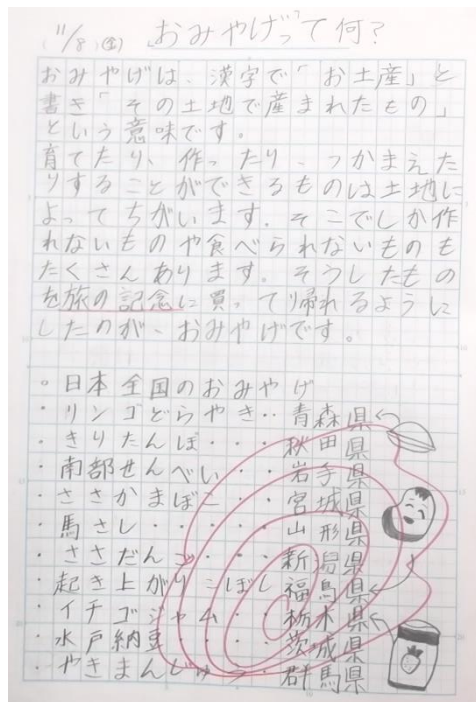 11/8 (金) 「おみやげ」って何?
おみやげは、漢字で「お土産」と
書き「その土地で産まれたもの」
という意味です。
育てたり、作ったり、つかまえた
りすることができるものは土地に
よってちがいます。そこでしか作
れないものや食べられないものも
たくさんあります。そうしたもの
を旅の記念に買って帰れるように
したのが、おみやげです。
。日本全国のおみやげ
・リンゴどらやき・・青森県
・きりたんぽ・・・秋田県
・南部せんべい・・・岩手県
・ささかまぼこ・・・宮城県
・馬さし・・・・・山形県
・ささだんご・・・新潟県
・起き上がりこぼし福島県
・イチゴジャム・・栃木県
・水戸納豆・・・・茨城県
・やきまんじゅう・群馬県